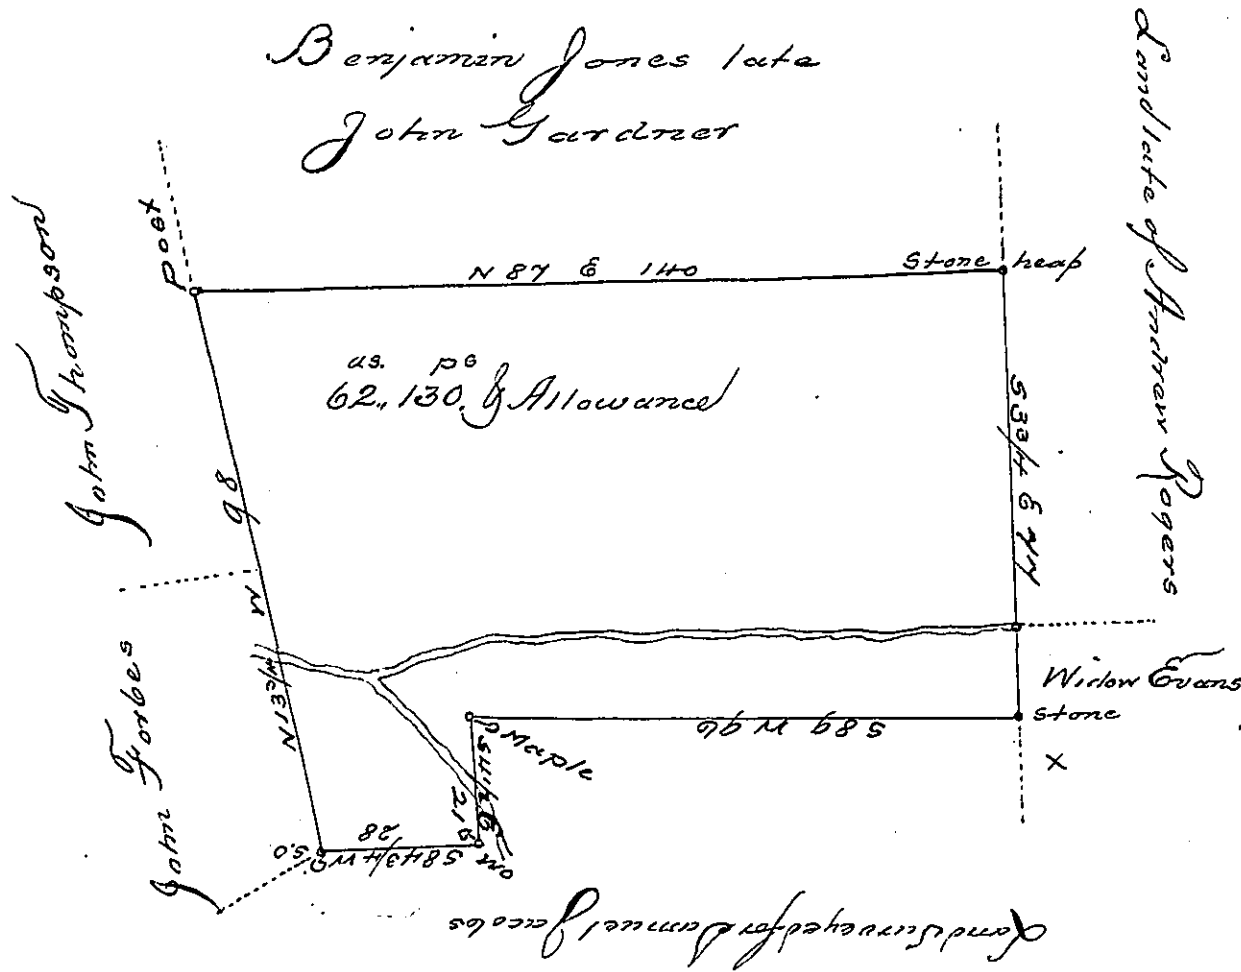 Benjamin Jones late
John Gardner
Land late of Andrew Rogers
John Thompson
Post
N 87 E 140
Stone heap
as. ps
62,, 130. & Allowance
S 3 3/4 E 74
N 13 3/4 W 98
John Forbes
Widow Evans
Stone
X
S 89 W 96
Maple
S 4 1/4 E
S 84 3/4 W
28
Land Surveyed for Samuel Jacobs